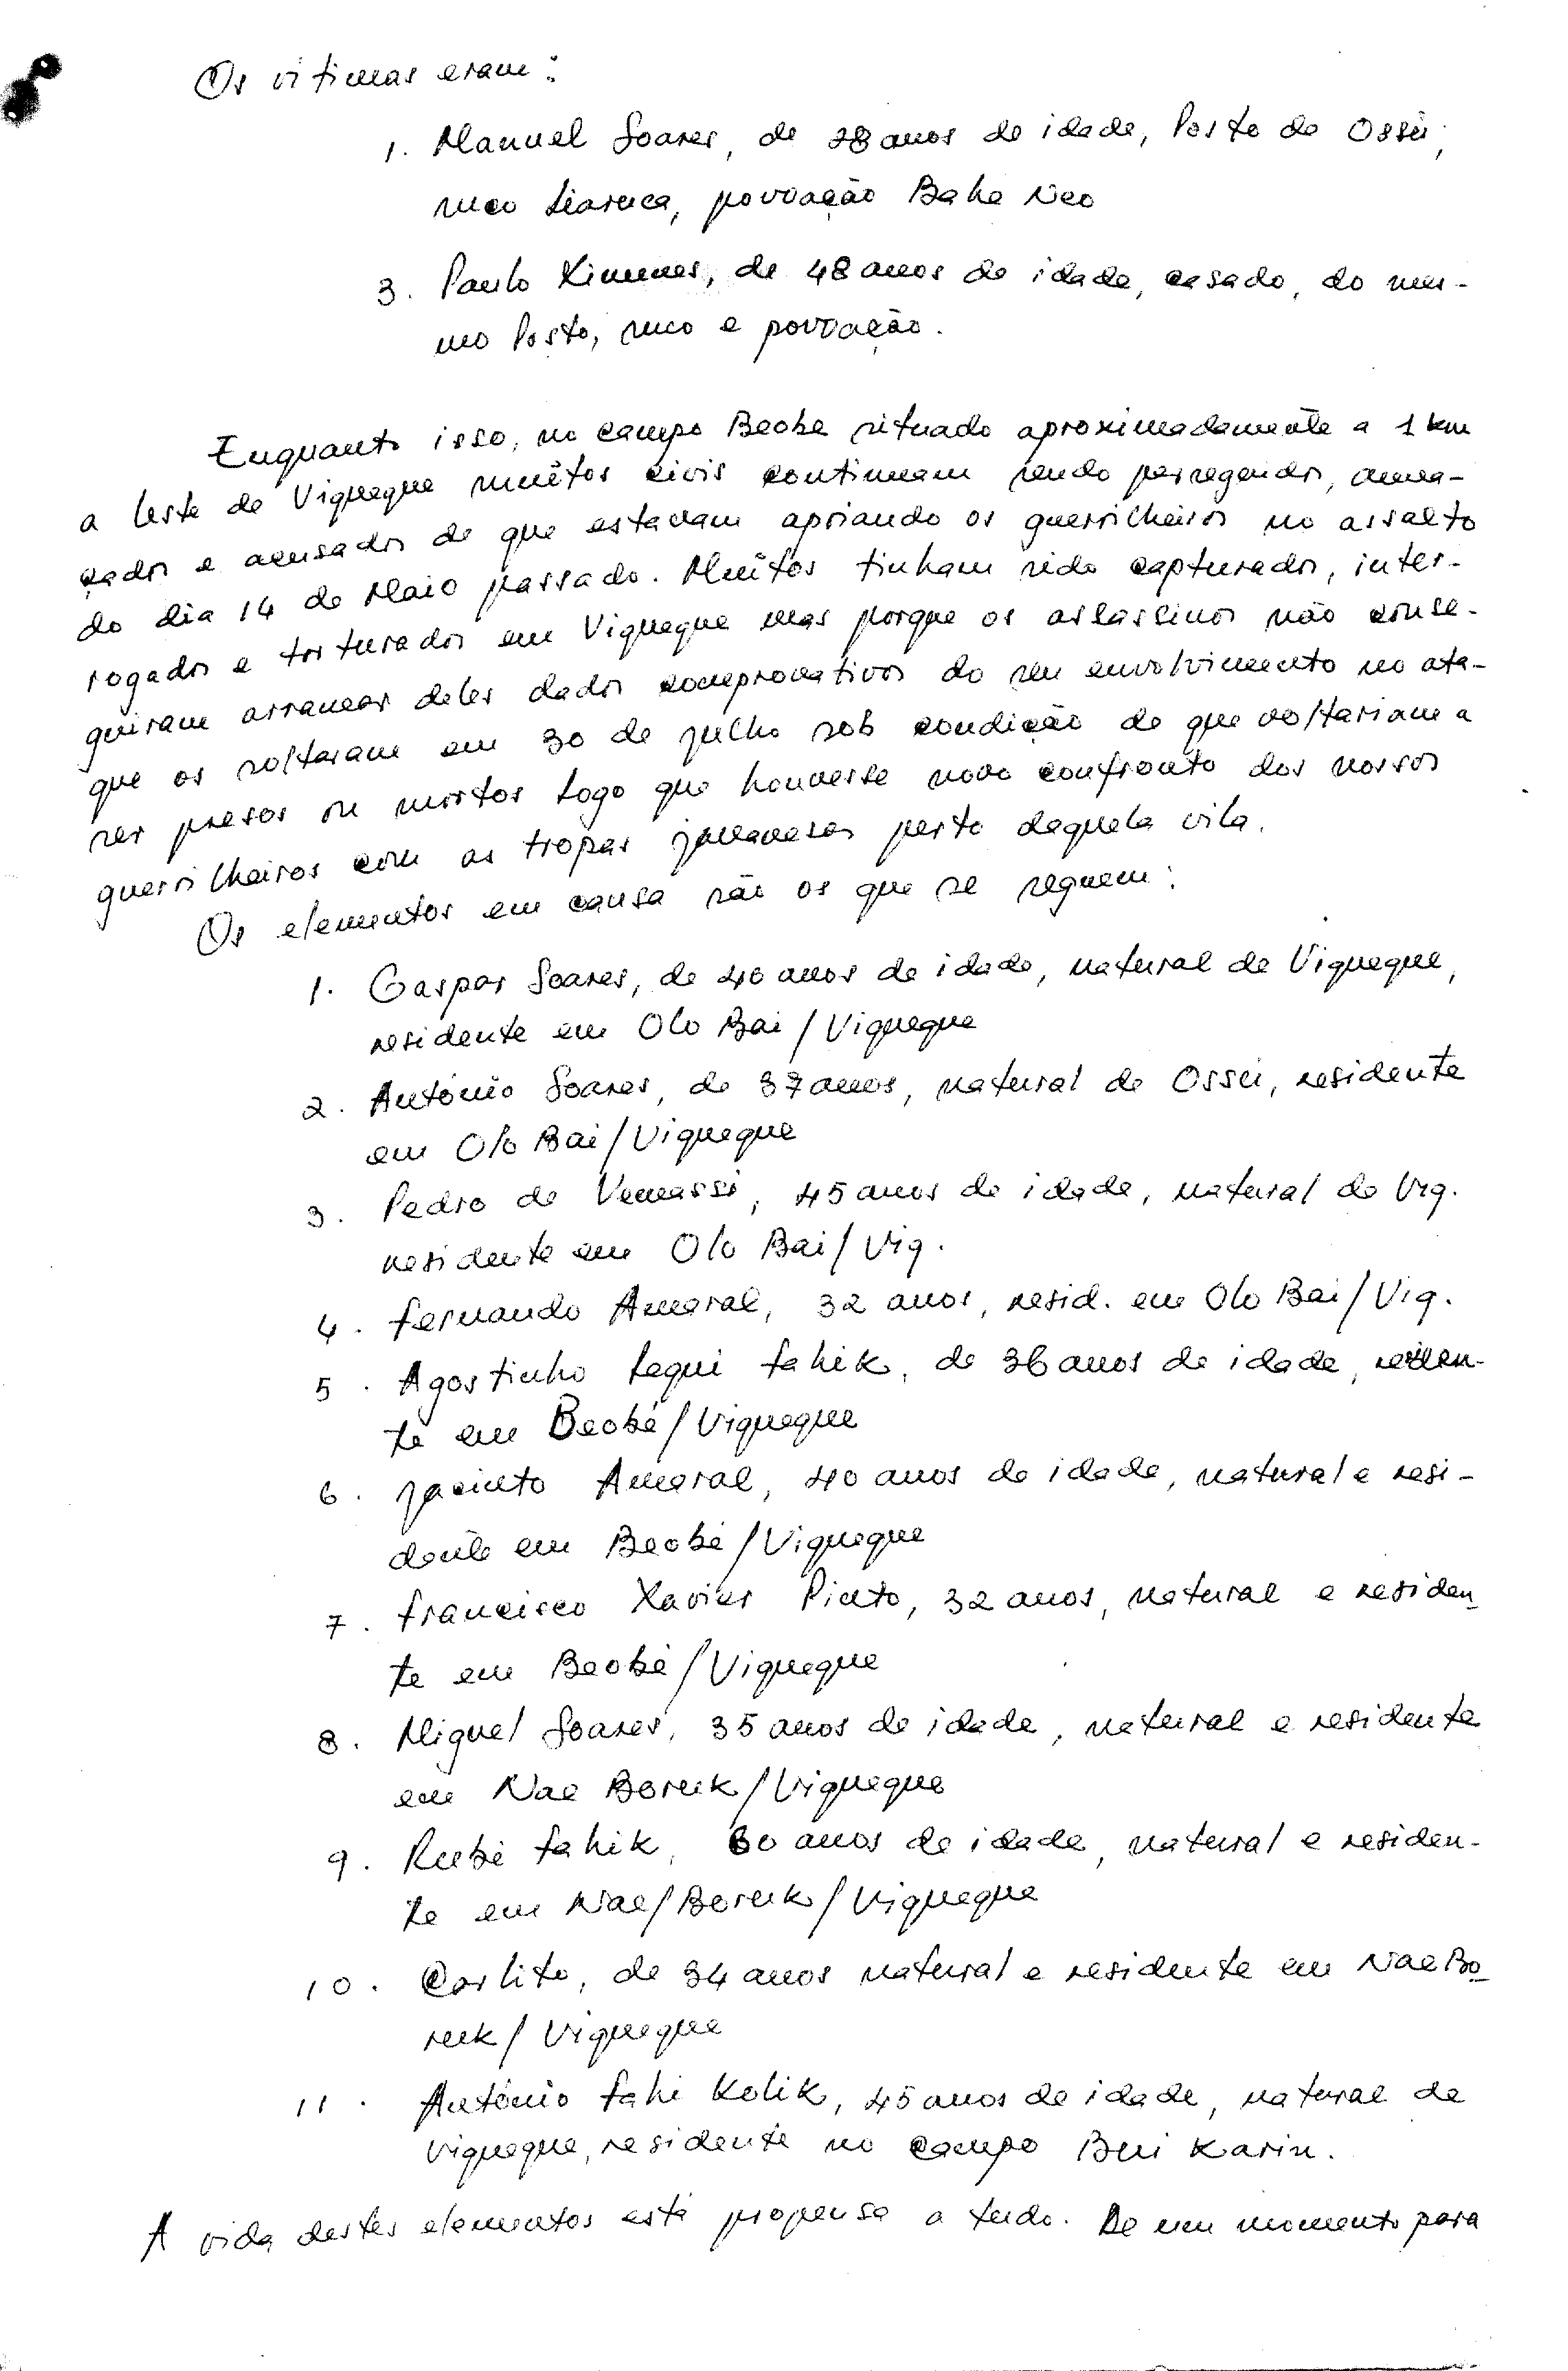 Os vitimas eram:
1. Manuel Soares, de 28 anos de idade, Posto de Ossú,
suco Liaruca, povoação Baha Neo
3. Paulo Ximenes, de 48 anos de idade, casado, do mes-
mo Posto, suco e povoação.
Enquanto isso, no campo Beobe situado aproximadamente a 1 km
a leste de Viqueque muitos civis continuam sendo perseguidos, amea-
çados e acusados de que estavam apoiando os guerrilheiros no assalto
do dia 14 de Maio passado. Muitos tinham sido capturados, inter-
rogados e torturados em Viqueque mas porque os assassinos não conse-
guiram arrancar deles dados comprovativos do seu envolvimento no ata-
que os soltaram em 30 de julho sob condição de que voltariam a
ser presos ou mortos logo que houvesse novo confronto dos nossos
guerrilheiros com as tropas javanesas perto daquela vila.
Os elementos em causa são os que se seguem:
1. Gaspar Soares, de 40 anos de idade, natural de Viqueque,
residente em Olo Bai / Viqueque
2. António Soares, de 37 anos, natural de Ossú, residente
em Olo Bai / Viqueque
3. Pedro de Vemassi, 45 anos de idade, natural de Viq.
residente em Olo Bai / Viq.
4. Fernando Amaral, 32 anos, resid. em Olo Bai / Viq.
5. Agostinho Lequi Fahik, de 36 anos de idade, residen-
te em Beobé / Viqueque
6. Jacinto Amaral, 40 anos de idade, natural e resi-
dente em Beobé / Viqueque
7. Francisco Xavier Pinto, 32 anos, natural e residen-
te em Beobé / Viqueque
8. Miguel Soares, 35 anos de idade, natural e residente
em Nae Boruk / Viqueque
9. Rubi Fahik, 60 anos de idade, natural e residen-
te em Nae / Boruk / Viqueque
10. Carlito, de 34 anos natural e residente em Nae Bo-
ruk / Viqueque
11. António Fahi Kolik, 45 anos de idade, natural de
Viqueque, residente no campo Bui Karin.
A vida destes elementos está propensa a tudo. De um momento para